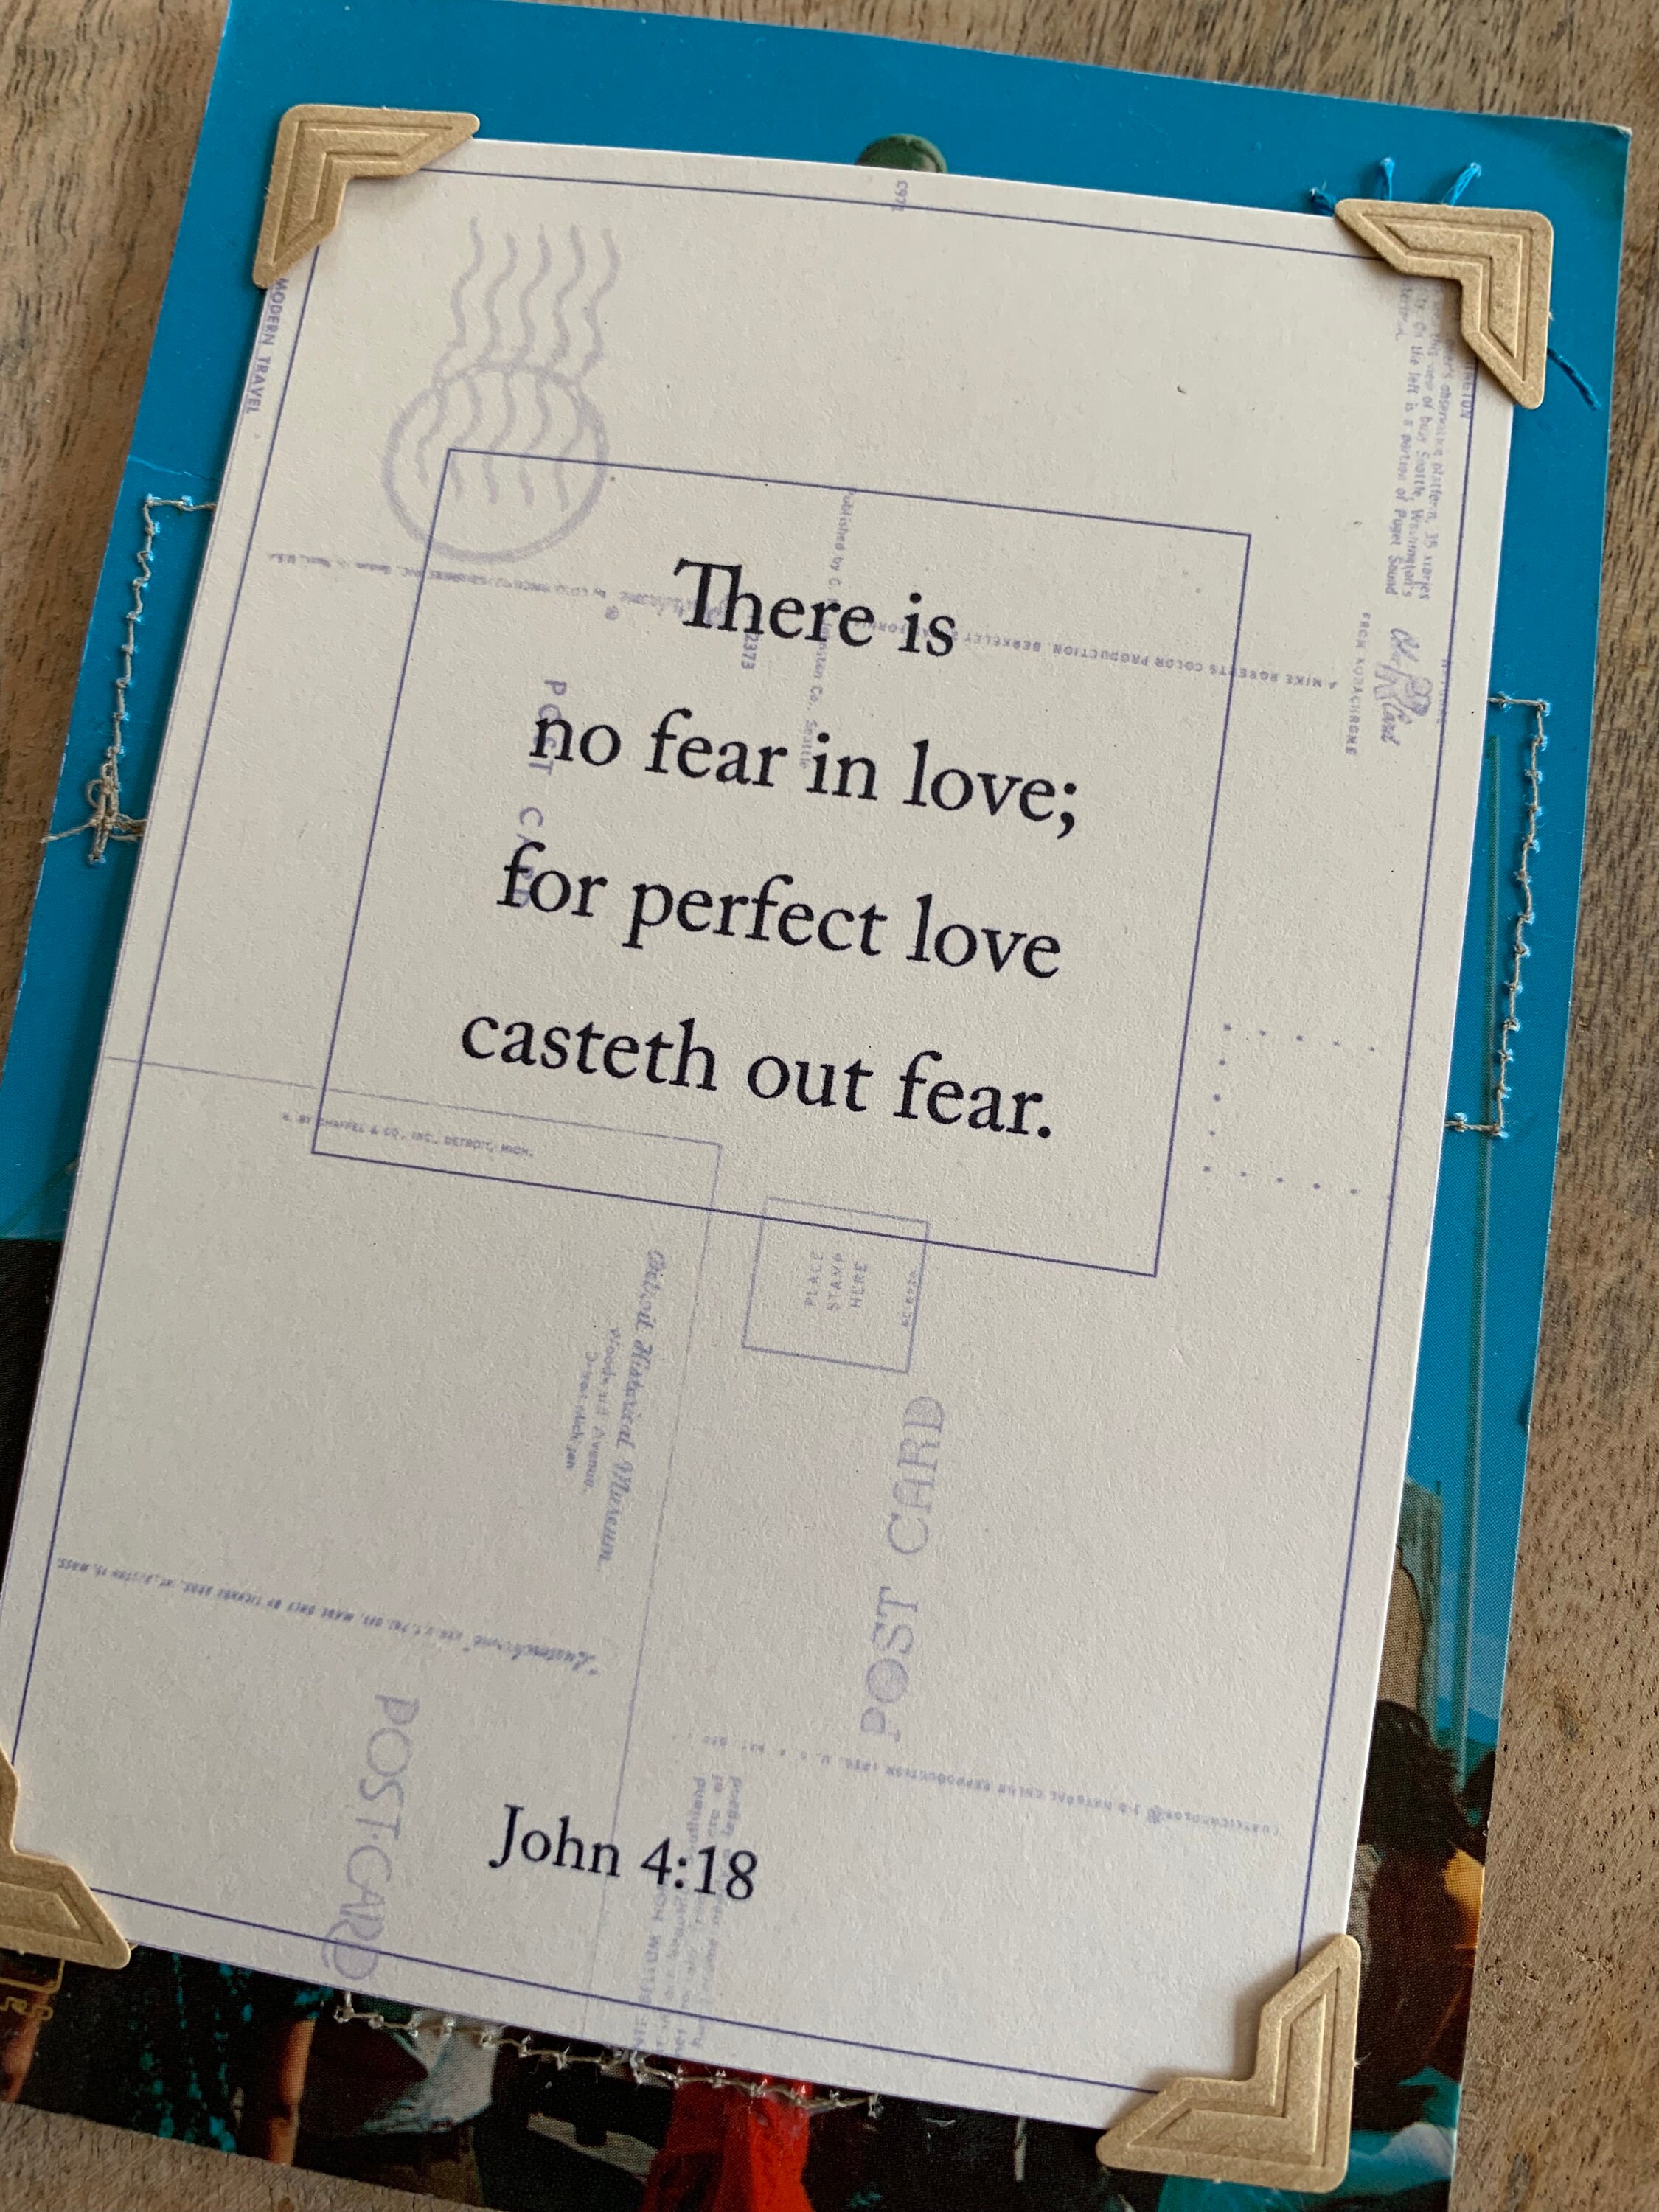 There is
no fear in love;
for perfect love
casteth out fear.
John 4:18
MODERN TRAVEL
C971
Published by C.
Co., Seattle
2373
POST CARD
MIKE ROBERTS COLOR PRODUCTION, BERKELEY
observation platform, 35 stories
this view of busy Seattle, Washington's
On the left is a portion of Puget Sound
FROM KODACHROME
BY CHAFFEL & CO., INC., DETROIT, MICH.
PLACE
STAMP
HERE
Detroit Historical Museum
Woodward Avenue,
POST CARD
MADE ONLY BY TICHNOR BROS.
POST CARD
NATURAL COLOR REPRODUCTION